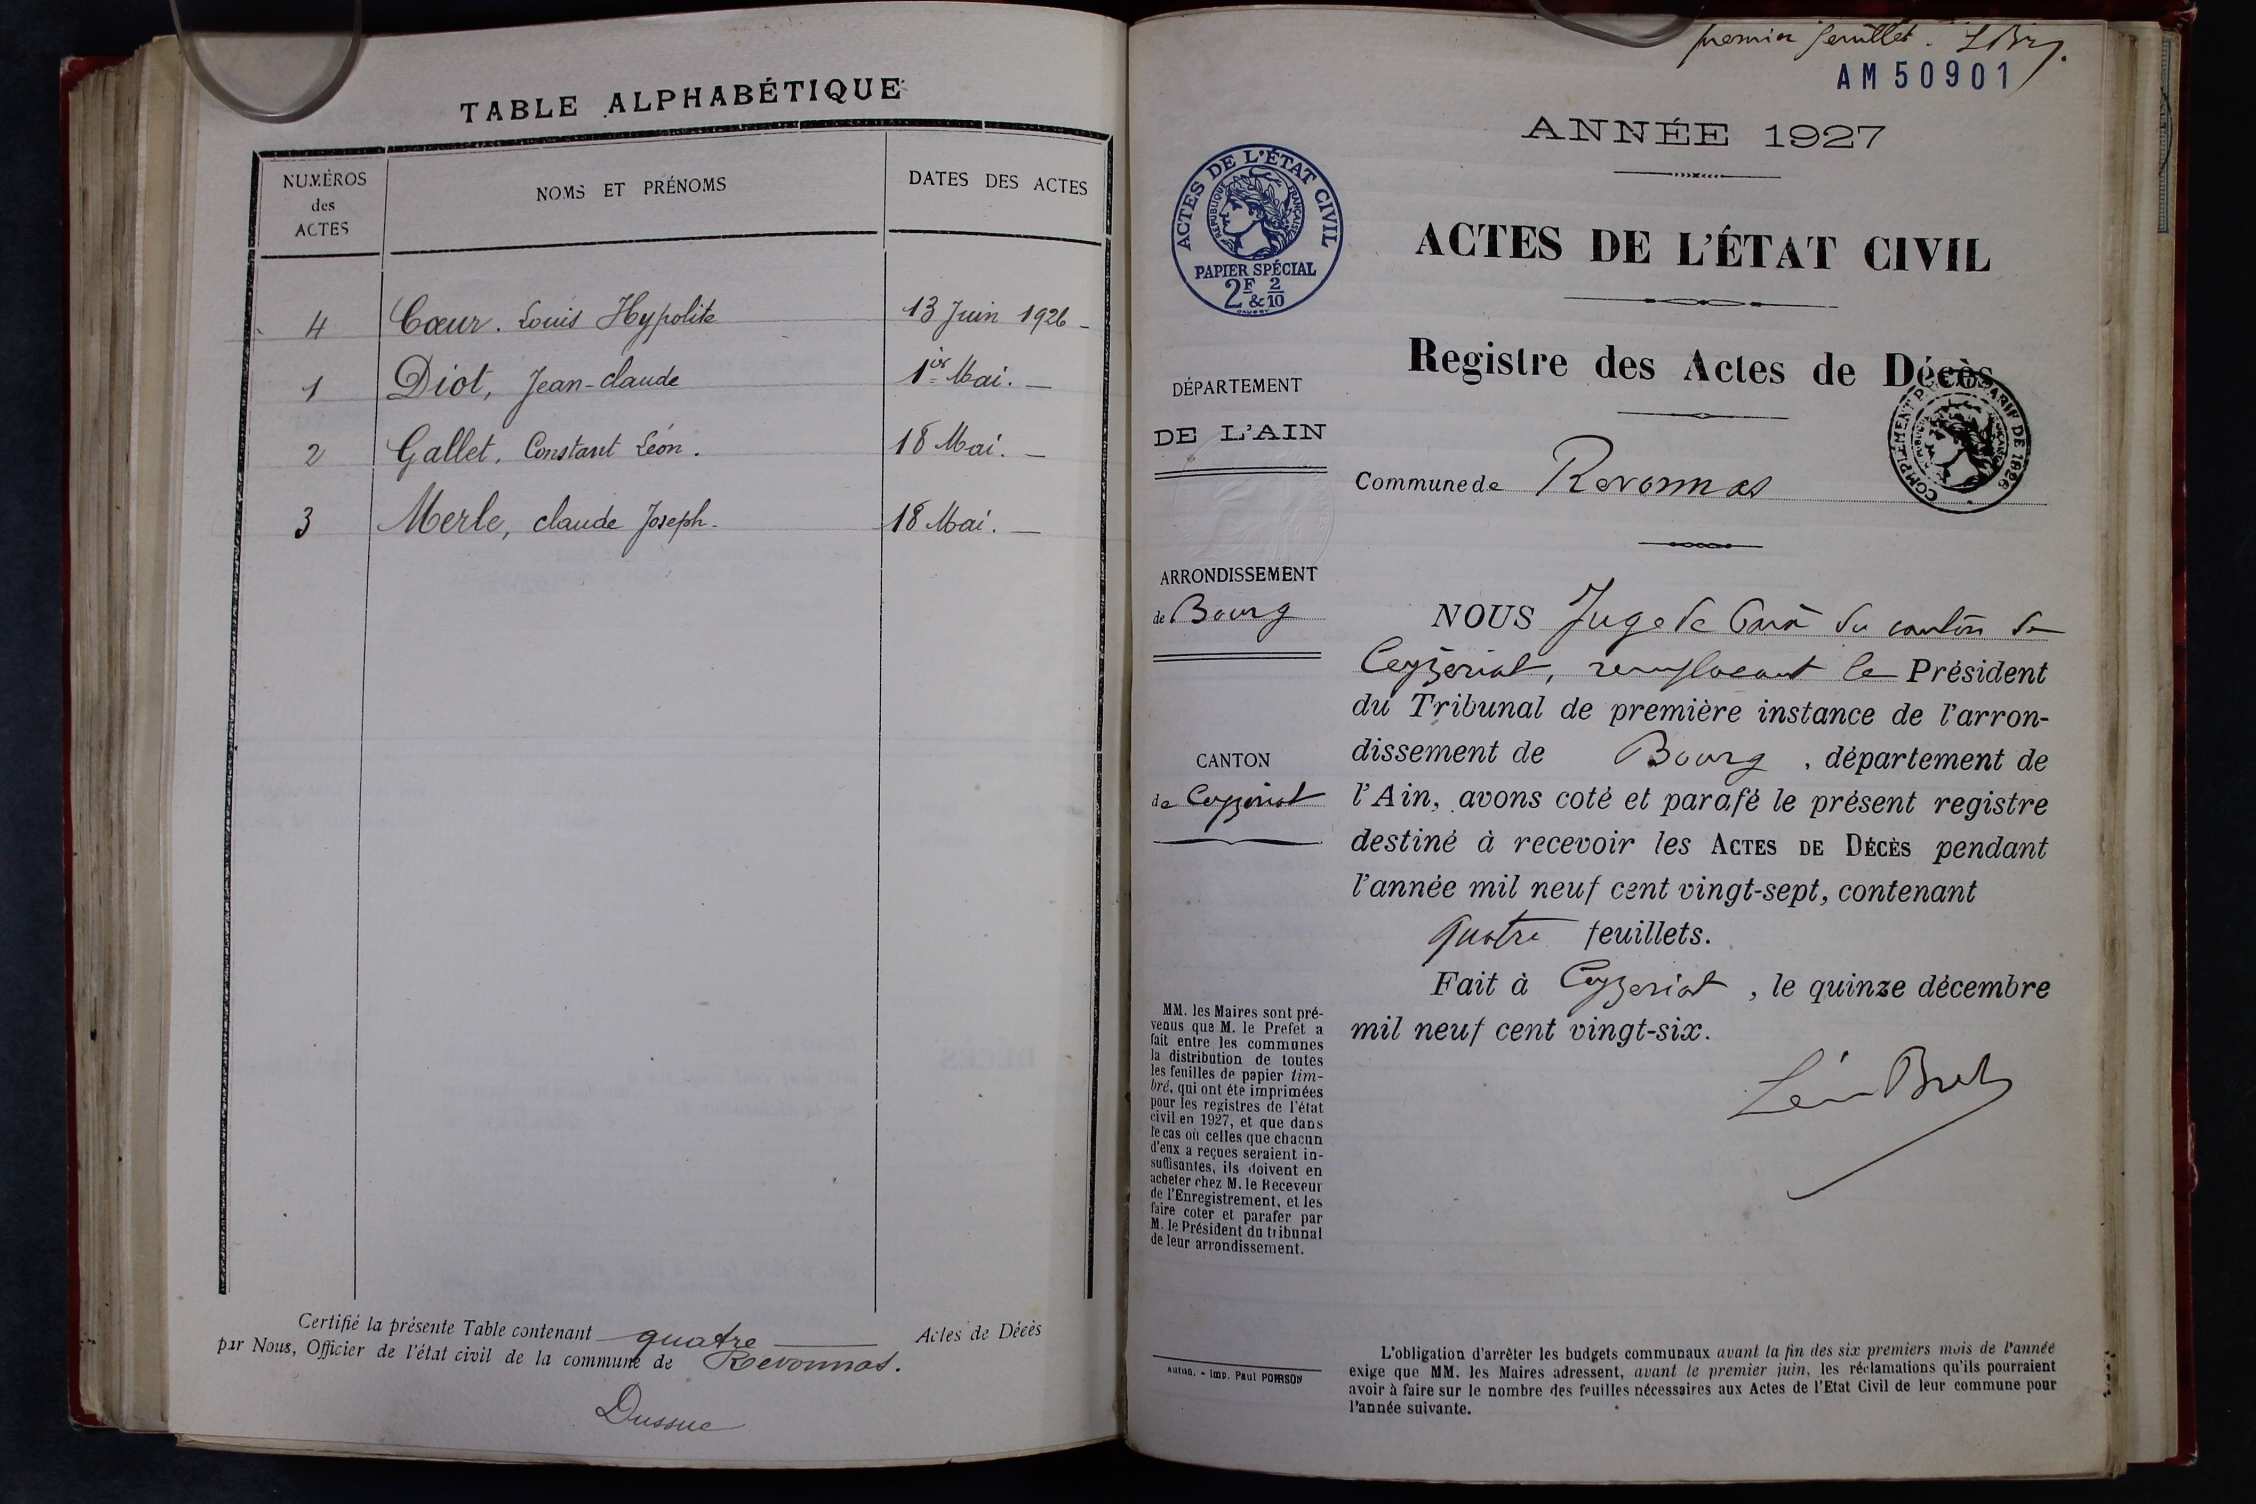 TABLE ALPHABÉTIQUE
NUMÉROS
des
ACTES
NOMS ET PRÉNOMS
DATES DES ACTES
4 Cœur. Louis Hypolite 13 Juin 1926 -
1 Diot, Jean-claude 1er Mai. -
2 Gallet. Constant Léon. 18 Mai. -
3 Merle, claude Joseph. 18 Mai. -
Certifié la présente Table contenant quatre Actes de Décès
par Nous, Officier de l'état civil de la commune de Revonnas.
Dussuc
premier feuillet.
AM 50901
ANNÉE 1927
ACTES DE L'ÉTAT CIVIL
RÉPUBLIQUE FRANÇAISE
PAPIER SPÉCIAL
2F & 2/10
ACTES DE L'ÉTAT CIVIL
Registre des Actes de Décès
DÉPARTEMENT
DE L'AIN
Commune de Revonnas
ARRONDISSEMENT
de Bourg
CANTON
de Ceyzeriat
NOUS Juge de Paix du canton de
Ceyzeriat, remplacant le Président
du Tribunal de première instance de l'arron-
dissement de Bourg, département de
l'Ain, avons coté et parafé le présent registre
destiné à recevoir les ACTES DE DÉCÈS pendant
l'année mil neuf cent vingt-sept, contenant
quatre feuillets.
Fait à Ceyzeriat, le quinze décembre
mil neuf cent vingt-six.
MM. les Maires sont pré-
venus que M. le Prefet a
fait entre les communes
la distribution de toutes
les feuilles de papier tim-
bré, qui ont été imprimées
pour les registres de l'état
civil en 1927, et que dans
le cas où celles que chacun
d'eux a reçues seraient in-
suffisantes, ils doivent en
acheter chez M. le Receveur
de l'Enregistrement, et les
faire coter et parafer par
M. le Président du tribunal
de leur arrondissement.
Imp. Paul POIRSON
L'obligation d'arrêter les budgets communaux avant la fin des six premiers mois de l'année
exige que MM. les Maires adressent, avant le premier juin, les réclamations qu'ils pourraient
avoir à faire sur le nombre des feuilles nécessaires aux Actes de l'Etat Civil de leur commune pour
l'année suivante.